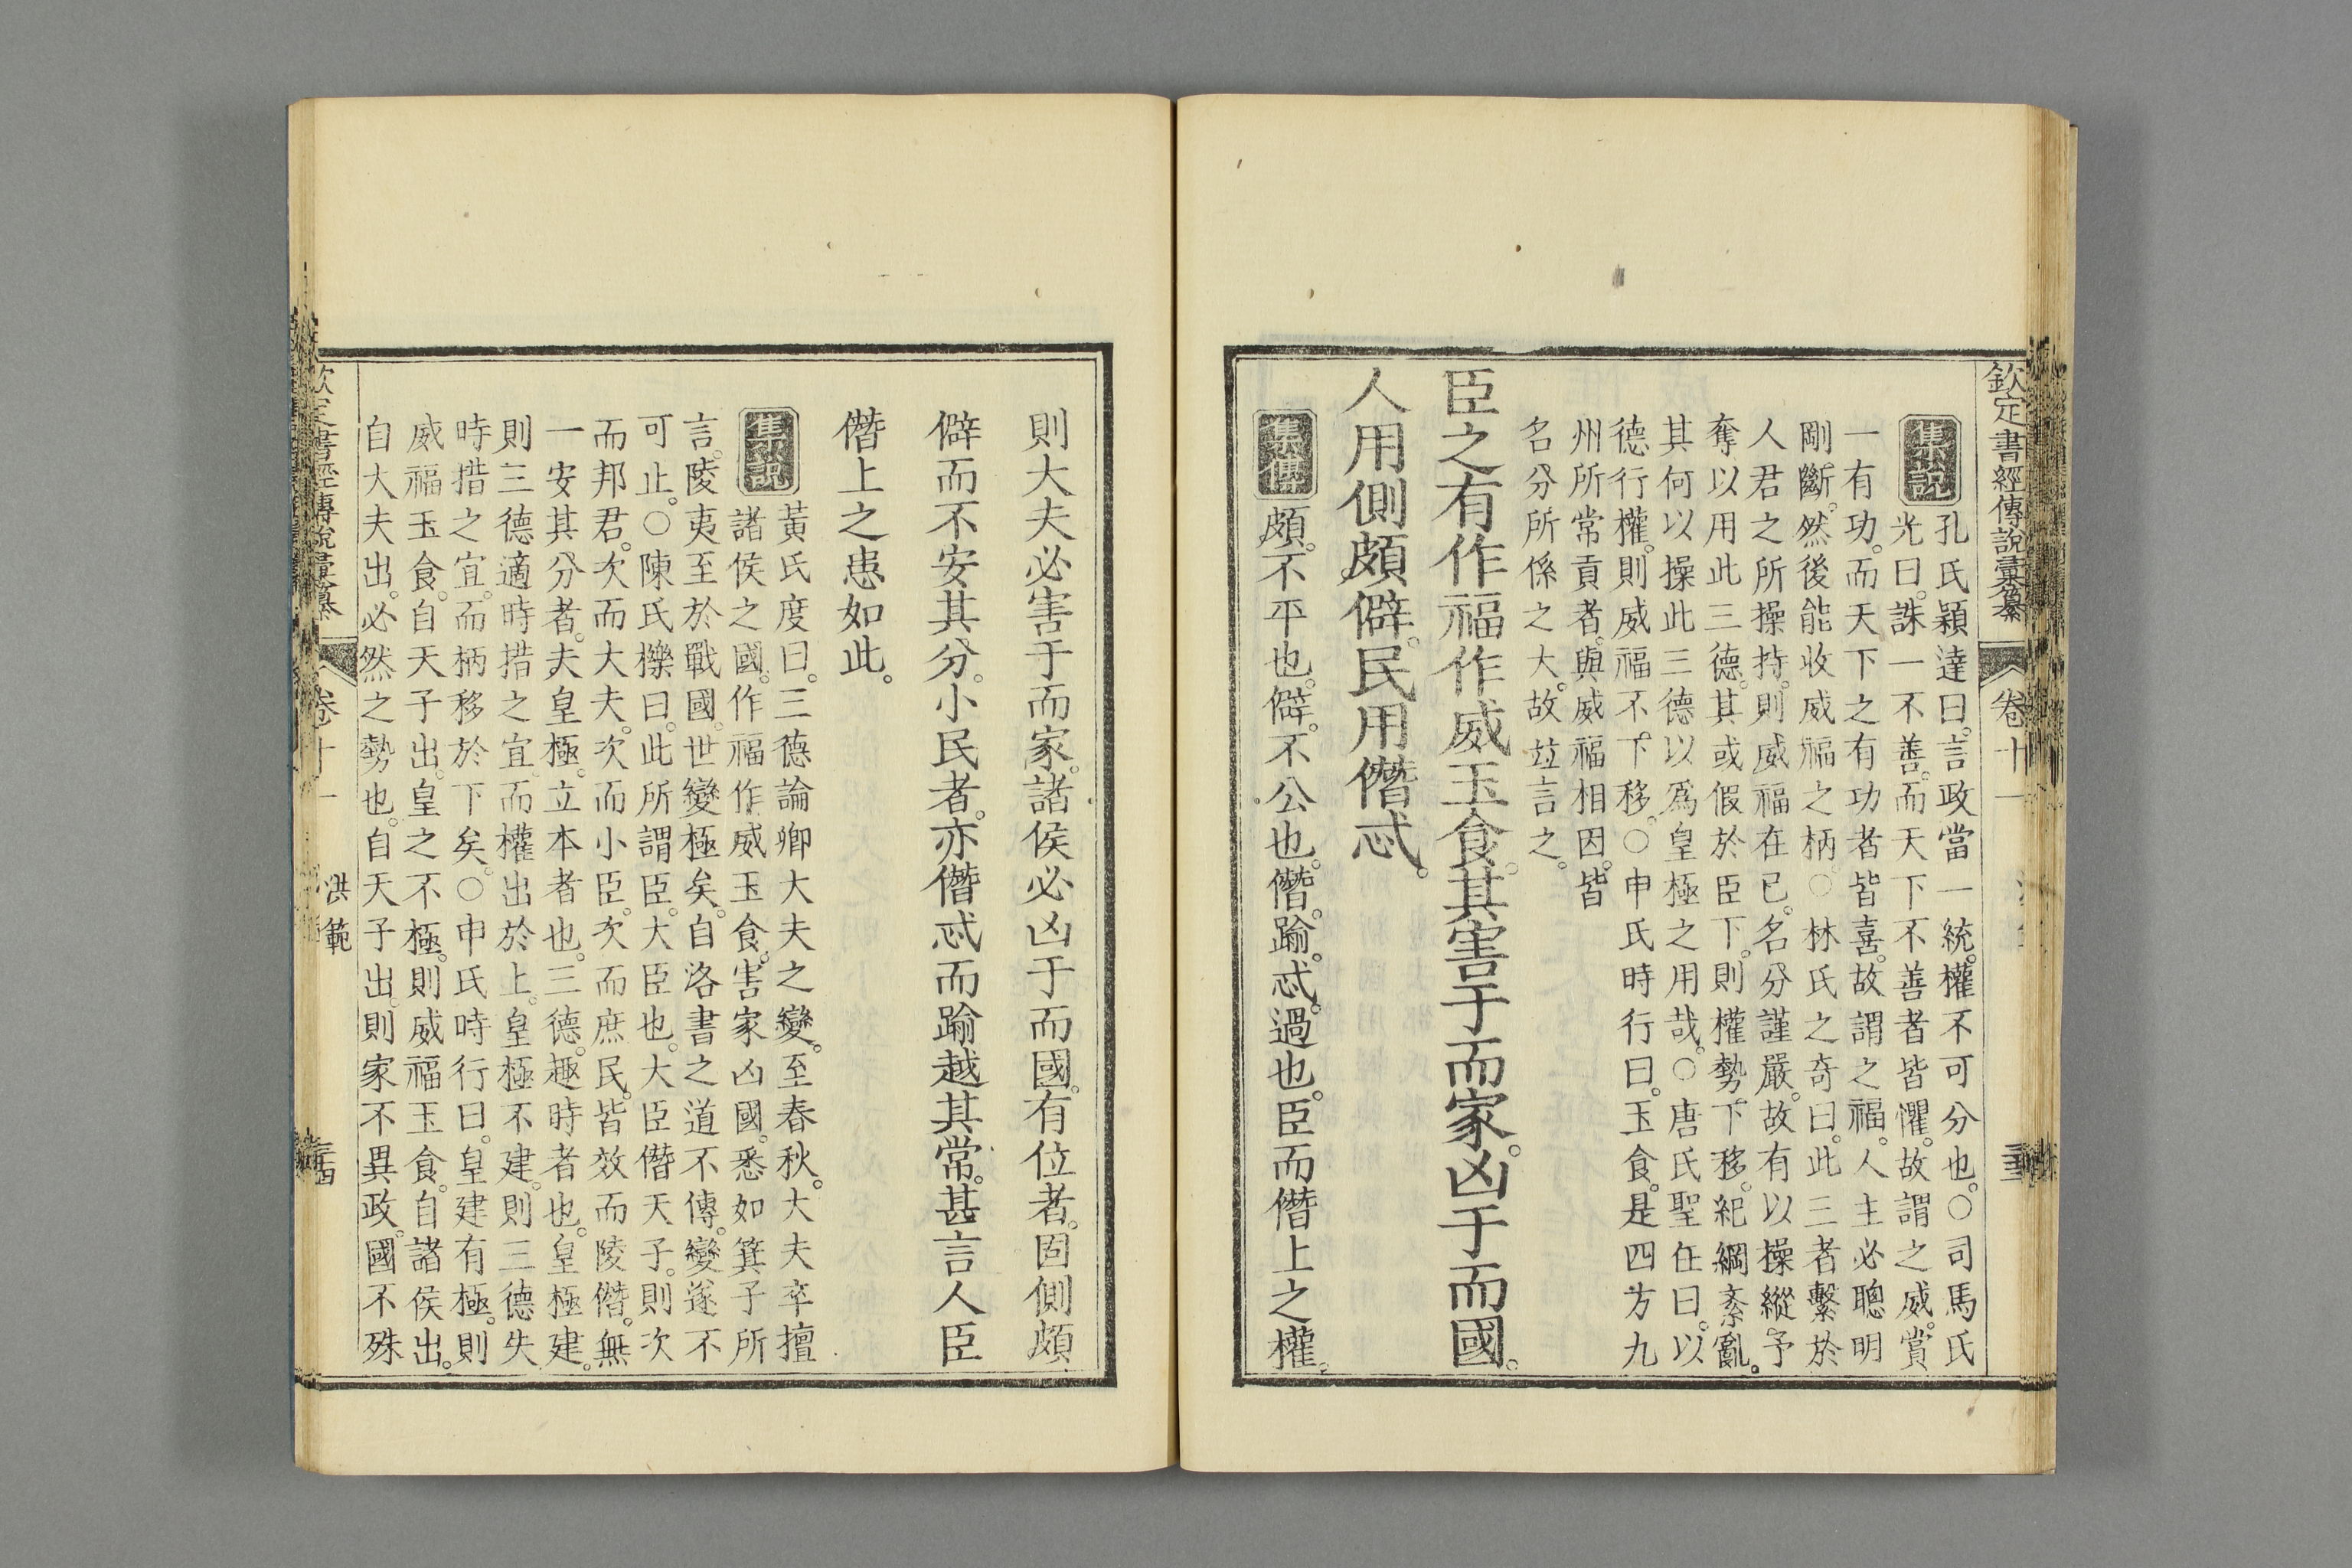 欽定書經傳說彙纂 卷十一
集說
孔氏穎達曰。言政當一統。權不可分也。○司馬氏
光曰。誅一不善。而天下不善者皆懼。故謂之威。賞
一有功。而天下之有功者皆喜。故謂之福。人主必聰明
剛斷。然後能收威福之柄。○林氏之奇曰。此三者繫於
人君之所操持。則威福在已。名分謹嚴。故有以操縱予
奪以用此三德。其或假於臣下。則權勢下移。紀綱紊亂。
其何以操此三德以爲皇極之用哉。○唐氏聖任曰。以
德行權。則威福不下移。○申氏時行曰。玉食。是四方九
州所常貢者。與威福相因。皆
名分所係之大。故竝言之。
臣之有作福作威玉食。其害于而家。凶于而國。
人用側頗僻。民用僭忒。
集傳
頗。不平也。僻。不公也。僭。踰。忒。過也。臣而僭上之權。
則大夫必害于而家。諸侯必凶于而國。有位者。固側頗
僻而不安其分。小民者。亦僭忒而踰越其常。甚言人臣
僭上之患如此。
集說
黃氏度曰。三德論卿大夫之變。至春秋。大夫卒擅
諸侯之國。作福作威玉食。害家凶國。悉如箕子所
言。陵夷至於戰國。世變極矣。自洛書之道不傳。變遂不
可止。○陳氏櫟曰。此所謂臣。大臣也。大臣僭天子。則次
而邦君。次而大夫。次而小臣。次而庶民。皆效而陵僭。無
一安其分者。夫皇極。立本者也。三德。趣時者也。皇極建。
則三德適時措之宜。而權出於上。皇極不建。則三德失
時措之宜。而柄移於下矣。○申氏時行曰。皇建有極。則
威福玉食。自天子出。皇之不極。則威福玉食。自諸侯出。
自大夫出。必然之勢也。自天子出。則家不異政。國不殊
欽定書經傳說彙纂 卷十一 洪範